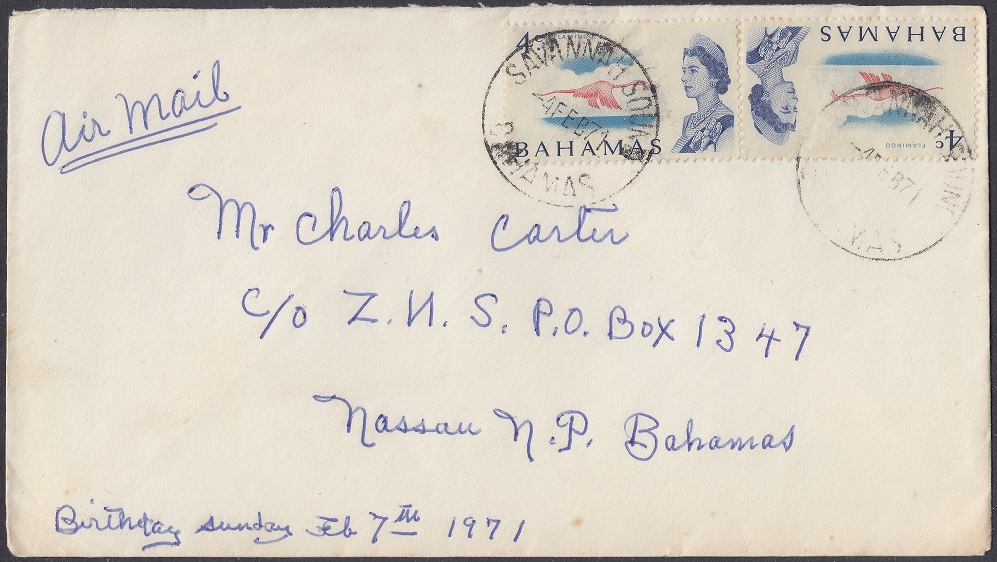 Air Mail
4c
FLAMINGO
BAHAMAS
SAVANNAH SOUND
4 FEB 71
BAHAMAS
BAHAMAS
FLAMINGO
4c
FEB 71
Mr Charles Carter
c/o Z.N.S. P.O. Box 1347
Nassau N.P. Bahamas
Birthday sunday Feb 7th 1971